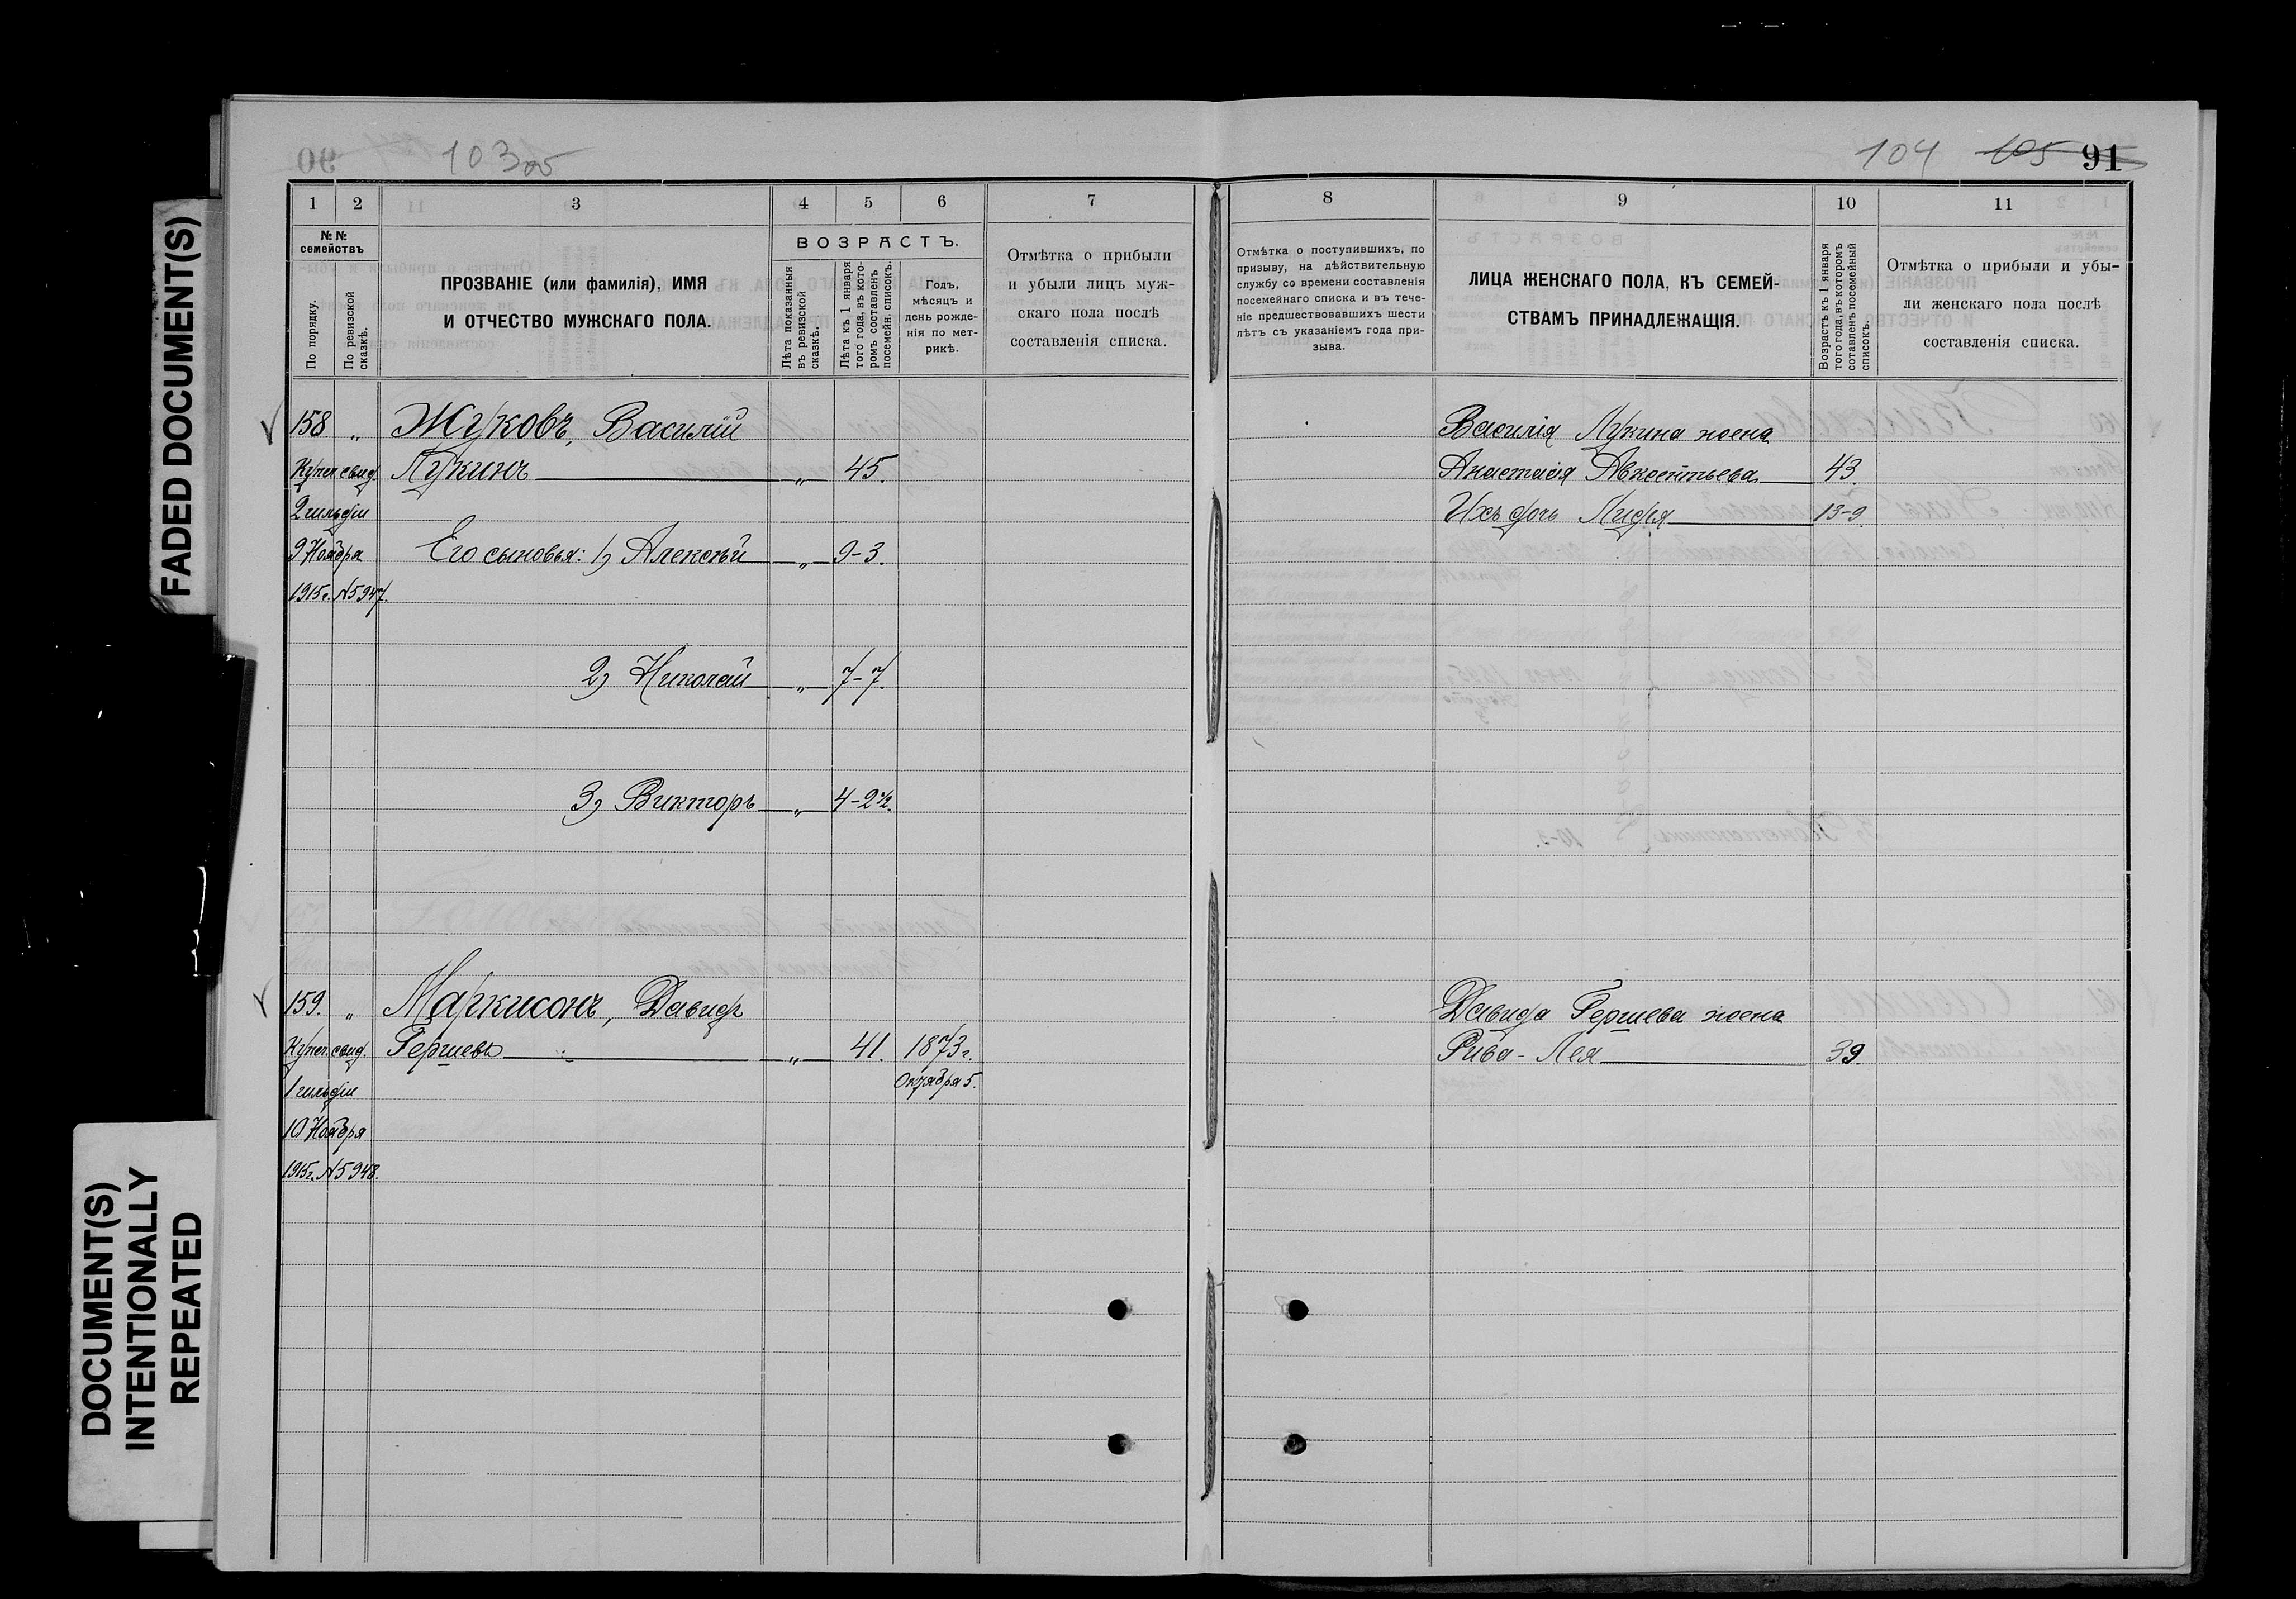 FADED DOCUMENT(S)
DOCUMENT(S)
INTENTIONALLY
REPEATED
103 об
104 105 91
1 2 3 4 5 6 7
№№ семействъ
По порядку.
По ревизской сказкѣ.
ПРОЗВАНІЕ (или фамилія), ИМЯ
И ОТЧЕСТВО МУЖСКАГО ПОЛА.
ВОЗРАСТЪ.
Лѣта показанныя въ ревизской сказкѣ.
Лѣта къ 1 января того года, въ которомъ составленъ посемейн. списокъ.
Годъ, мѣсяцъ и день рожденія по метрикѣ.
Отмѣтка о прибыли
и убыли лицъ муж-
скаго пола послѣ
составленія списка.
158 „ Жуковъ, Василій
Купеч. свид. Лукинъ „ 45.
2 гильдіи
9 Ноября Его сыновья: 1) Алексѣй „ 9-3.
1915г. №5947.
2) Николай „ 7-7.
3) Викторъ „ 4-2½.
159. „ Маркисонъ, Давидъ
Купеч. свид. Гершевъ „ 41. 1873г.
1 гильдіи Октября 5.
10 Ноября
1915г. №5948.
8 9 10 11
Отмѣтка о поступившихъ, по
призыву, на дѣйствительную
службу со времени составленія
посемейнаго списка и въ тече-
ніе предшествовавшихъ шести
лѣтъ съ указаніемъ года при-
зыва.
ЛИЦА ЖЕНСКАГО ПОЛА, КЪ СЕМЕЙ-
СТВАМЪ ПРИНАДЛЕЖАЩІЯ.
Возрастъ къ 1 января
того года, въ которомъ
сотавленъ посемейный
списокъ.
Отмѣтка о прибыли и убы-
ли женскаго пола послѣ
составленія списка.
Василія Лукина жена
Анастасія Авксентьева 43.
Ихъ дочь Лидія 13-9.
Давида Гершева жена
Рива-Лея 39.